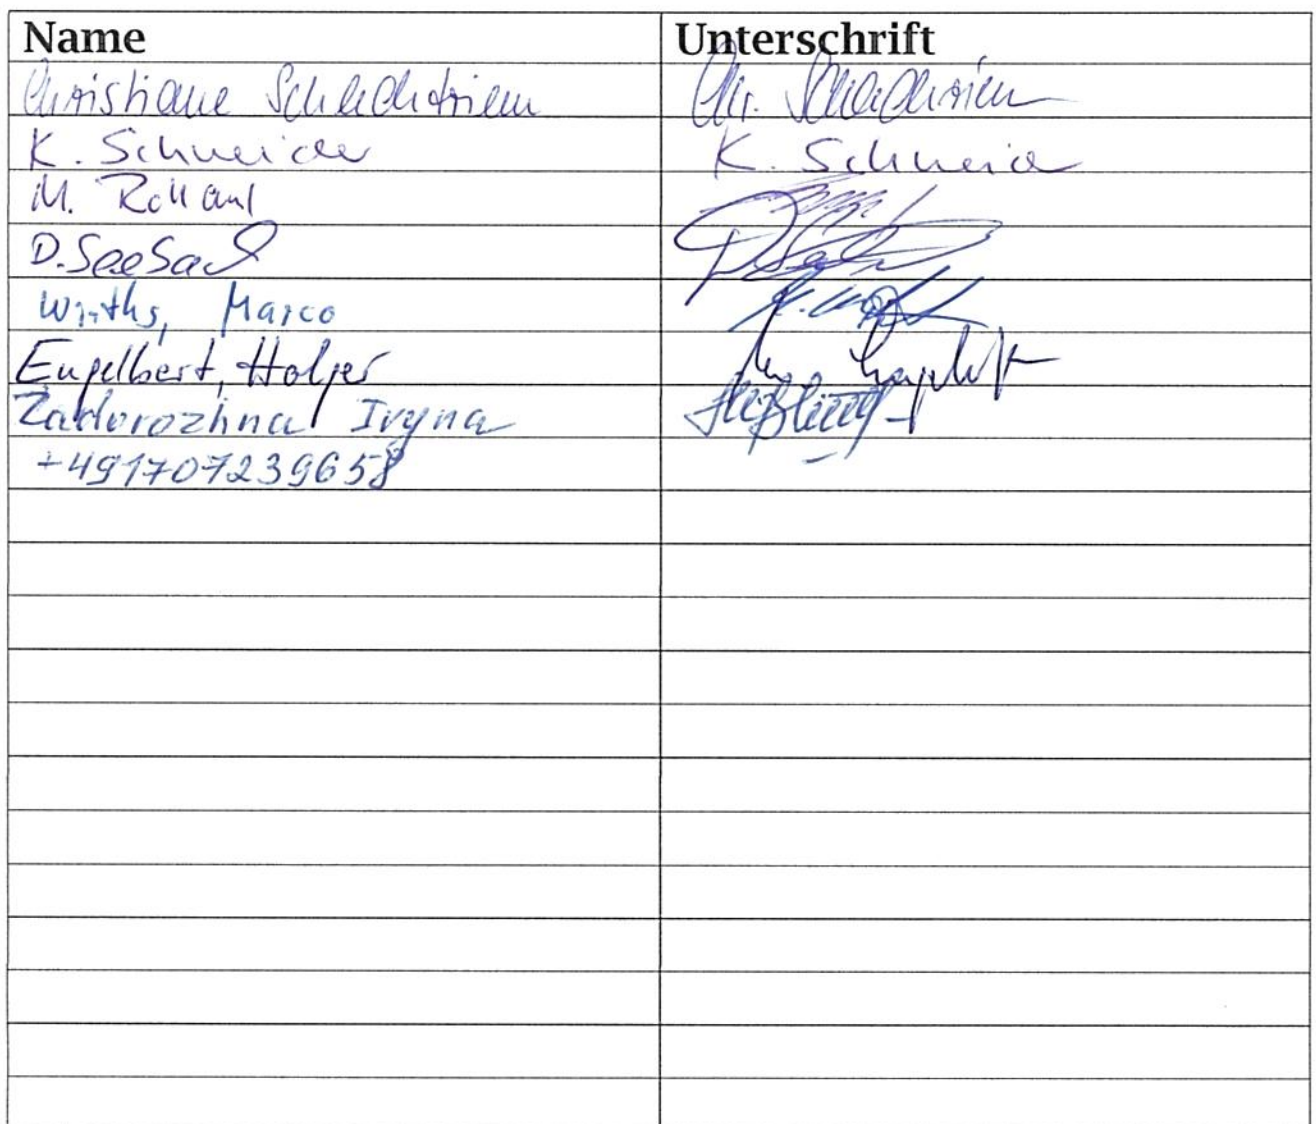 Name Unterschrift
Christiane Schlechtriem Chr. Schlechtriem
K. Schneider K. Schneider
M.
D. Seesack
Wirths, Marco
Engelbert, Holger
Zadorozhna Iryna
+491707239658